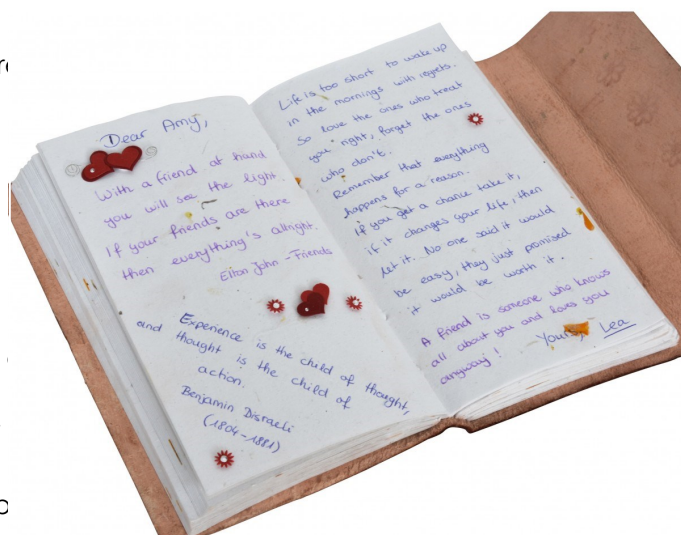 Dear Amy,
With a friend at hand
you will see the light
If your friends are there
then everything's allright.
Elton John - Friends
Experience is the child of thought,
and thought is the child of
action.
Benjamin Disraeli
(1804-1881)
Life is too short to wake up
in the mornings with regrets.
So love the ones who treat
you right, forget the ones
who don't.
Remember that everything
happens for a reason.
If you get a chance take it,
if it changes your life, then
let it. No one said it would
be easy, they just promised
it would be worth it.
A friend is someone who knows
all about you and loves you
anyway!
Yours, Lea